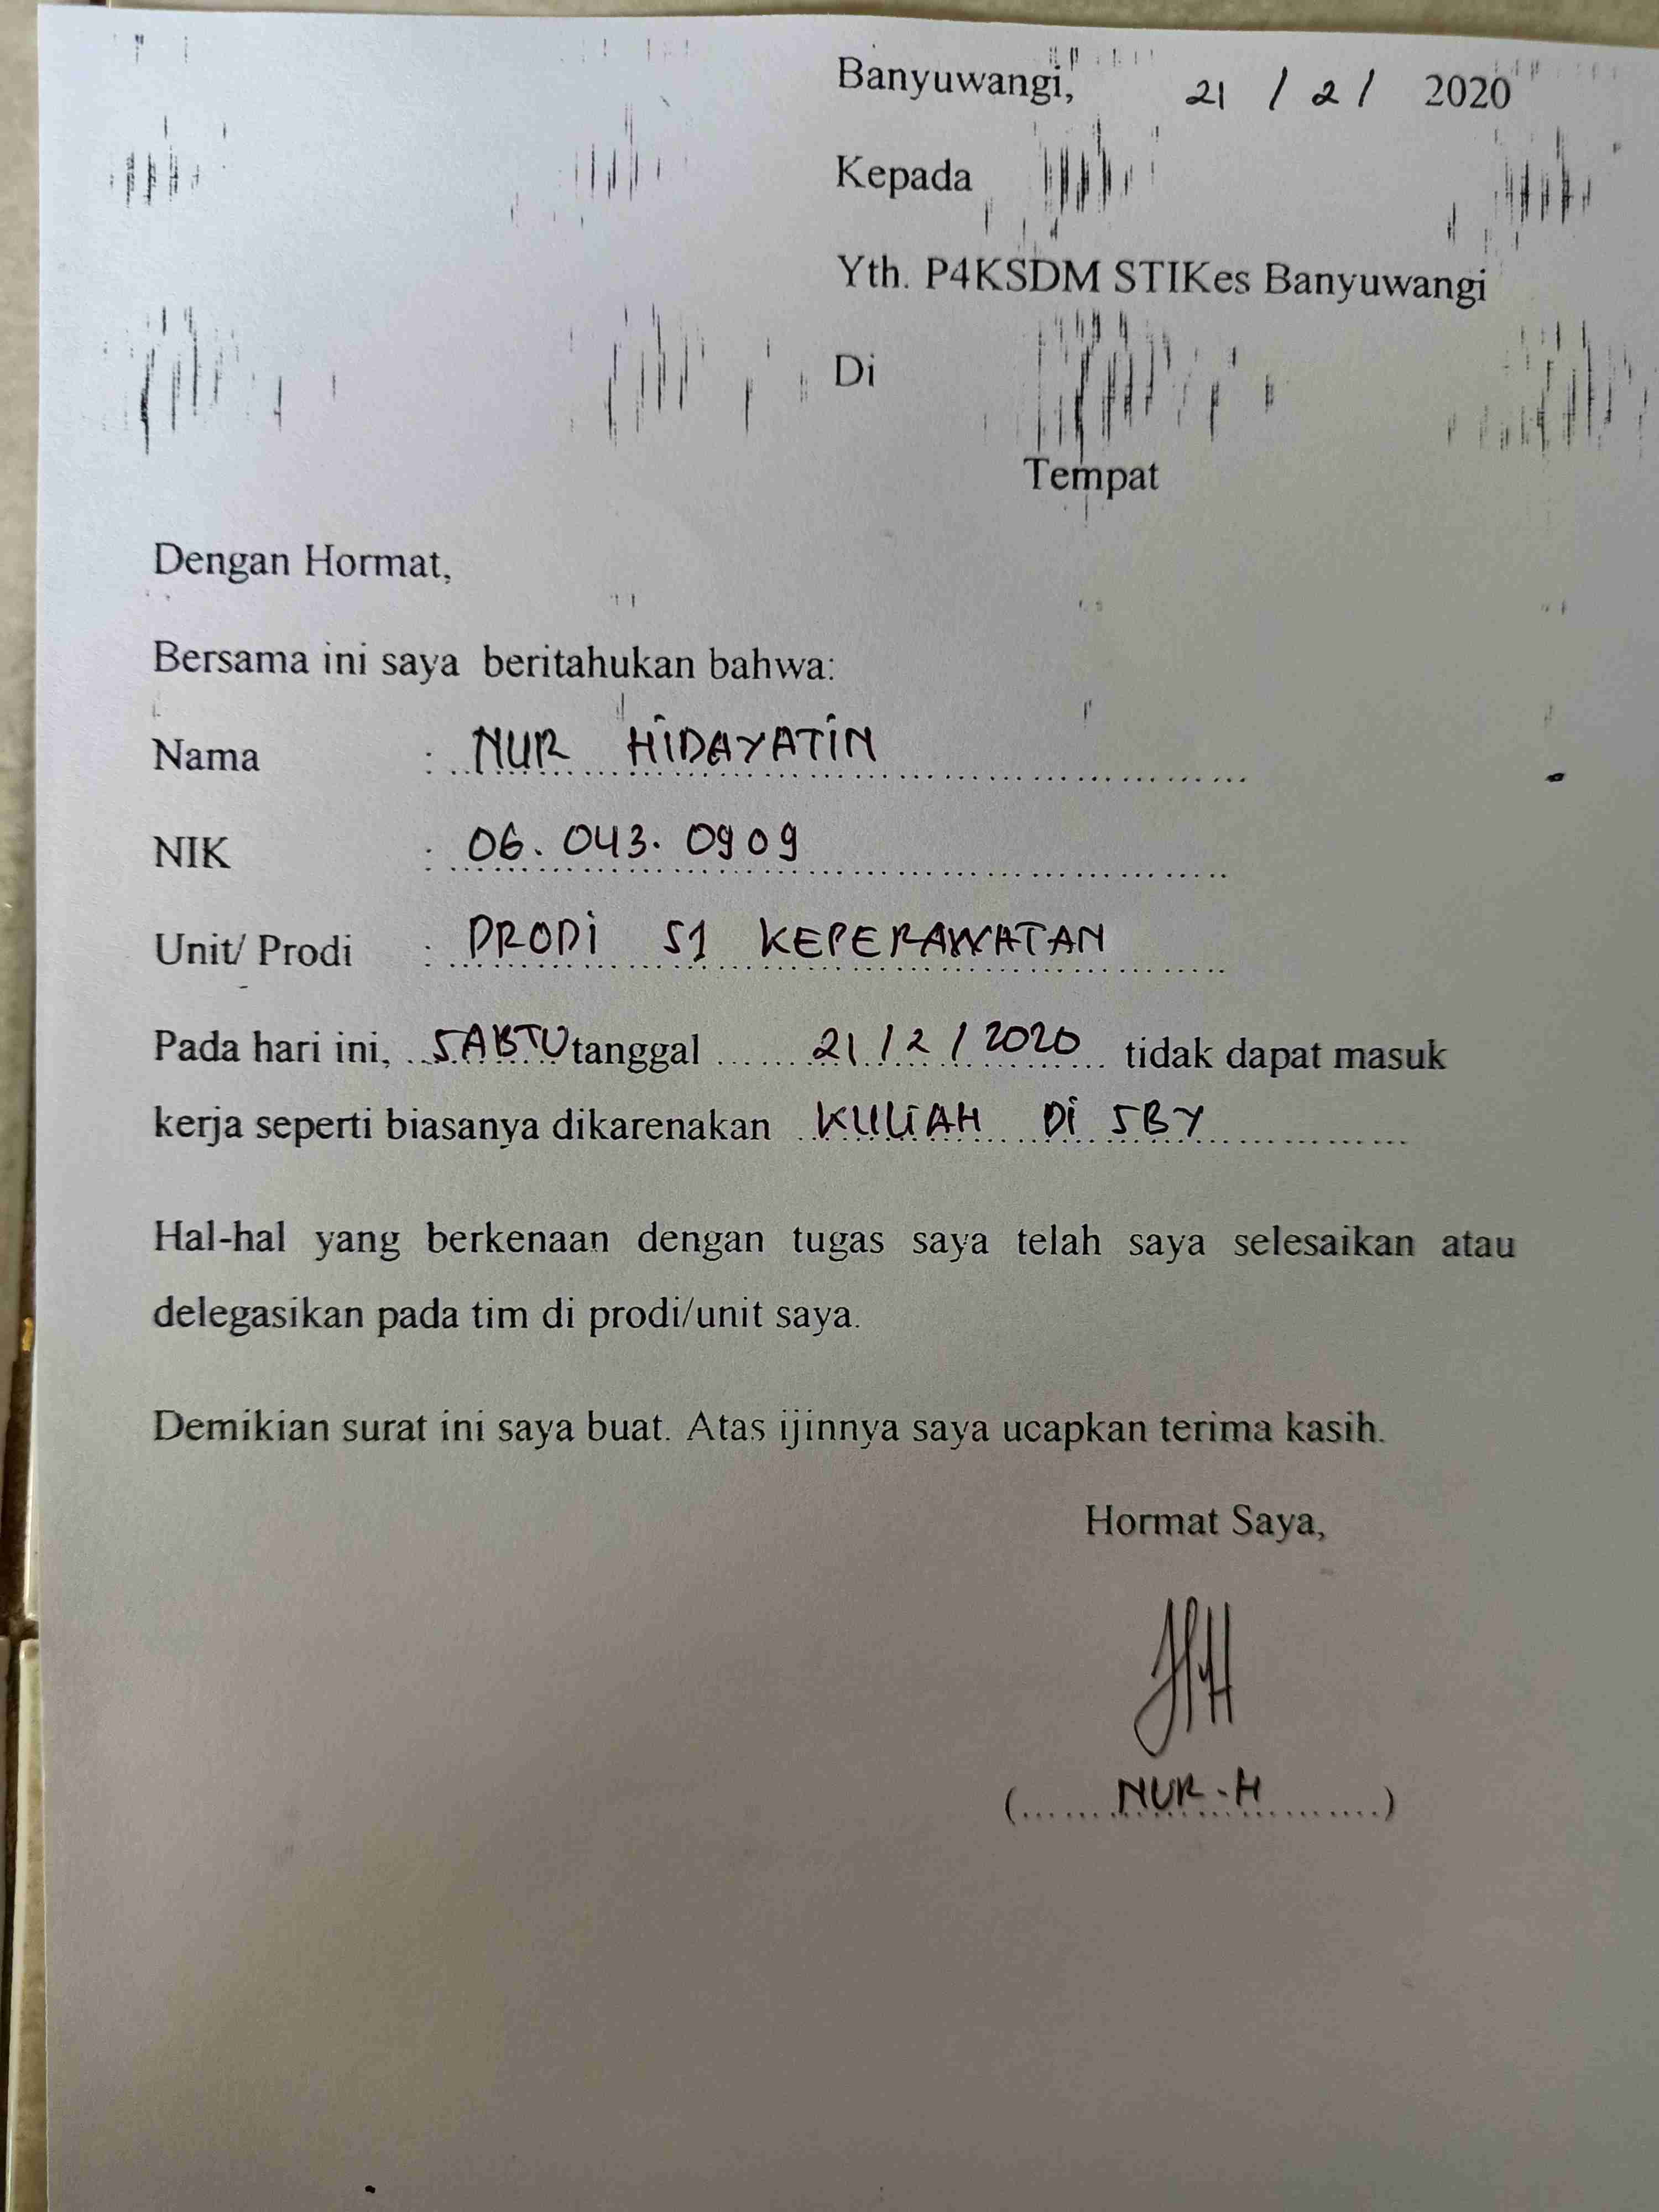 Banyuwangi, 21 / 2 / 2020
Kepada
Yth. P4KSDM STIKes Banyuwangi
Di
Tempat
Dengan Hormat,
Bersama ini saya beritahukan bahwa:
Nama : NUR HIDAYATIN
NIK : 06.043.0909
Unit/ Prodi : PRODI S1 KEPERAWATAN
Pada hari ini, SABTU tanggal 21/2/2020 tidak dapat masuk
kerja seperti biasanya dikarenakan KULIAH DI SBY
Hal-hal yang berkenaan dengan tugas saya telah saya selesaikan atau
delegasikan pada tim di prodi/unit saya.
Demikian surat ini saya buat. Atas ijinnya saya ucapkan terima kasih.
Hormat Saya,
(NUR-H)